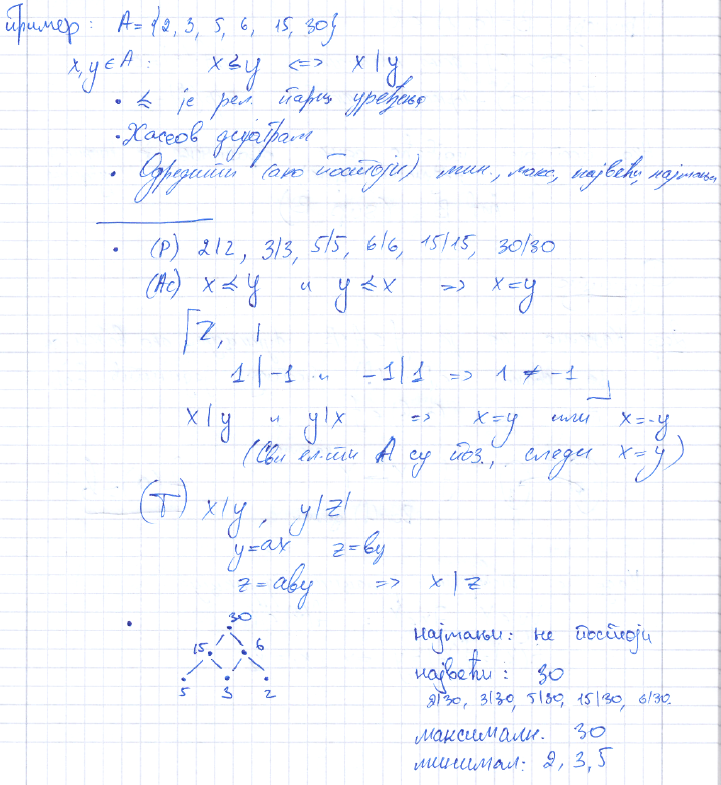 Пример: A = {2, 3, 5, 6, 15, 30}
x, y ∈ A : x ≤ y <=> x | y
• ≤ је рел. парц. уређења
• Хасеов дијаграм
• Одредити (ако постоји) мин., макс, највећи, најмањи
• (Р) 2|2, 3|3, 5|5, 6|6, 15|15, 30|30
(АС) x ≤ y и y ≤ x => x = y
⌈ Z, |
1 | -1 и -1 | 1 => 1 ≠ -1 ⌋
x | y и y | x => x = y или x = -y
(Сви ел-ти A су поз., следи x = y)
(Т) x | y, y | z
y = ax z = by
z = aby => x | z
•
30
15 6
5 3 2
најмањи: не постоји
највећи: 30
2|30, 3|30, 5|30, 15|30, 6|30.
максимали. 30
минимал: 2, 3, 5